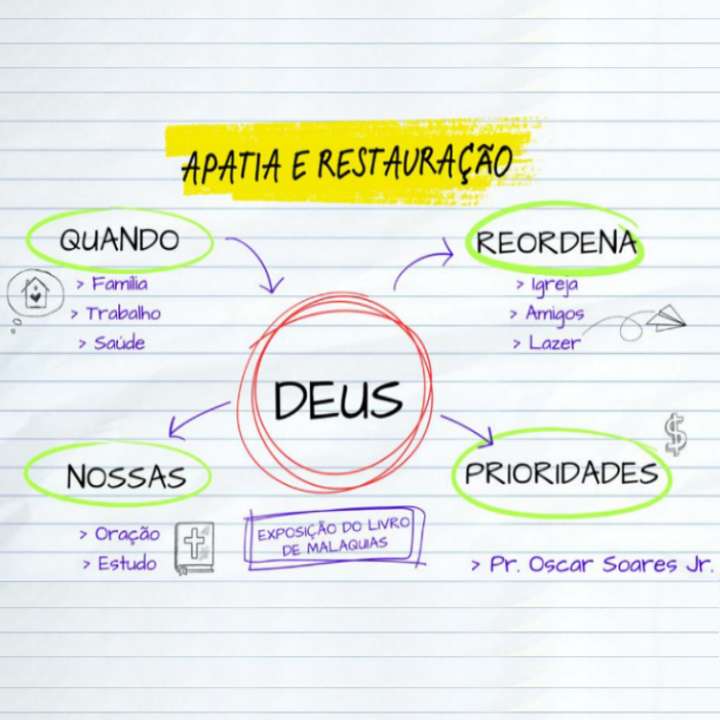 APATIA E RESTAURAÇÃO
QUANDO
> Família
> Trabalho
> Saúde
REORDENA
> Igreja
> Amigos
> Lazer
DEUS
NOSSAS
> Oração
> Estudo
PRIORIDADES
EXPOSIÇÃO DO LIVRO
DE MALAQUIAS
> Pr. Oscar Soares Jr.
$